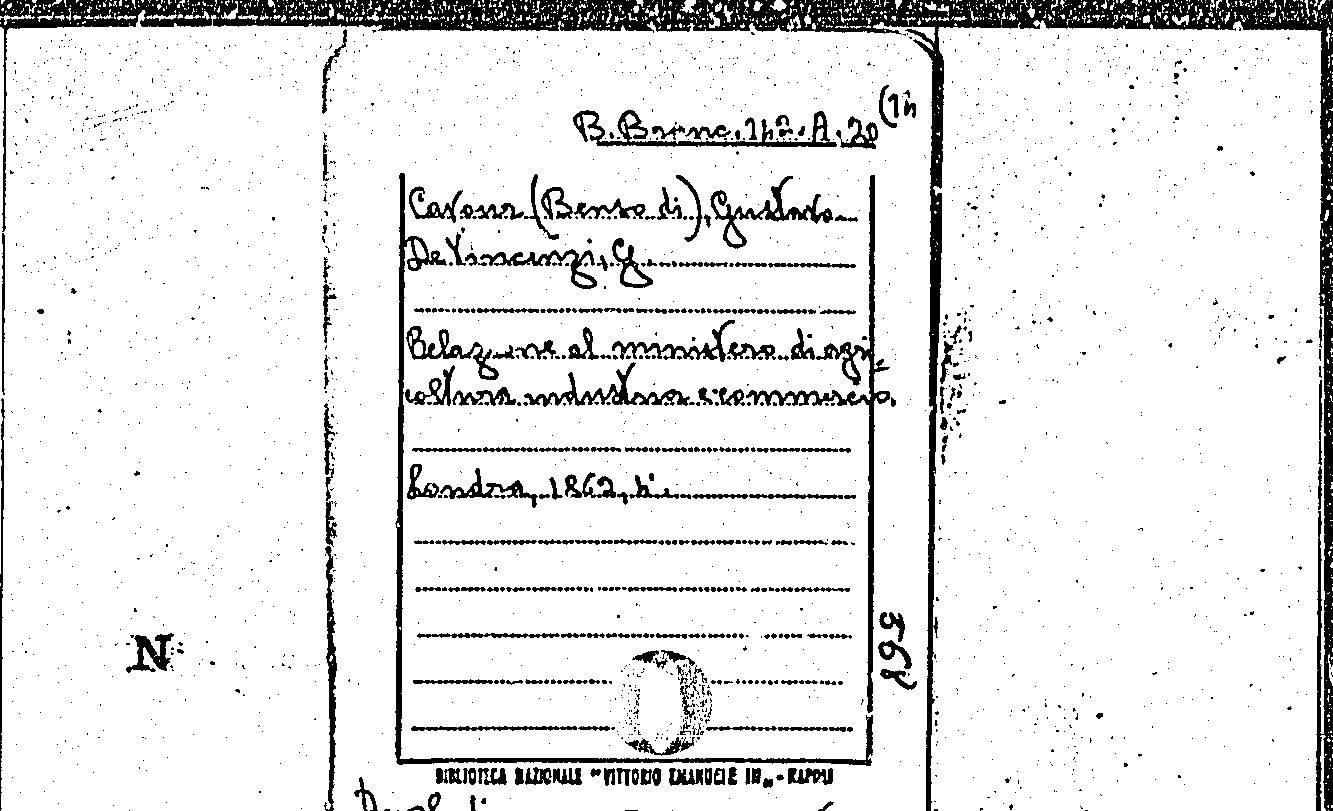 B. Branc. 142. A. 20 (14
Cavour (Benso di), Gustavo
De Vincenzi, G.
Relazione al ministero di agri-
coltura industria e commercio.
Londra, 1862, 4°.
368
N
BIBLIOTECA NAZIONALE "VITTORIO EMANUELE III„ - NAPOLI